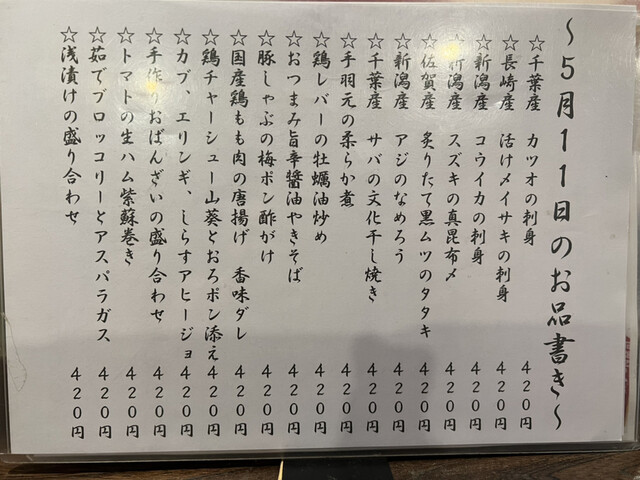 ～5月11日のお品書き～
☆千葉産 カツオの刺身 420円
☆長崎産 活けメイサキの刺身 420円
☆新潟産 コウイカの刺身 420円
☆新潟産 スズキの真昆布〆 420円
☆佐賀産 炙りたて黒ムツのタタキ 420円
☆新潟産 アジのなめろう 420円
☆千葉産 サバの文化干し焼き 420円
☆手羽元の柔らか煮 420円
☆鶏レバーの牡蠣油炒め 420円
☆おつまみ旨辛醬油やきそば 420円
☆豚しゃぶの梅ポン酢がけ 420円
☆国産鶏もも肉の唐揚げ 香味ダレ 420円
☆鶏チャーシュー山葵とおろポン添え 420円
☆カブ、エリンギ、しらすアヒージョ 420円
☆手作りおばんざいの盛り合わせ 420円
☆トマトの生ハム紫蘇巻き 420円
☆茹でブロッコリーとアスパラガス 420円
☆浅漬けの盛り合わせ 420円